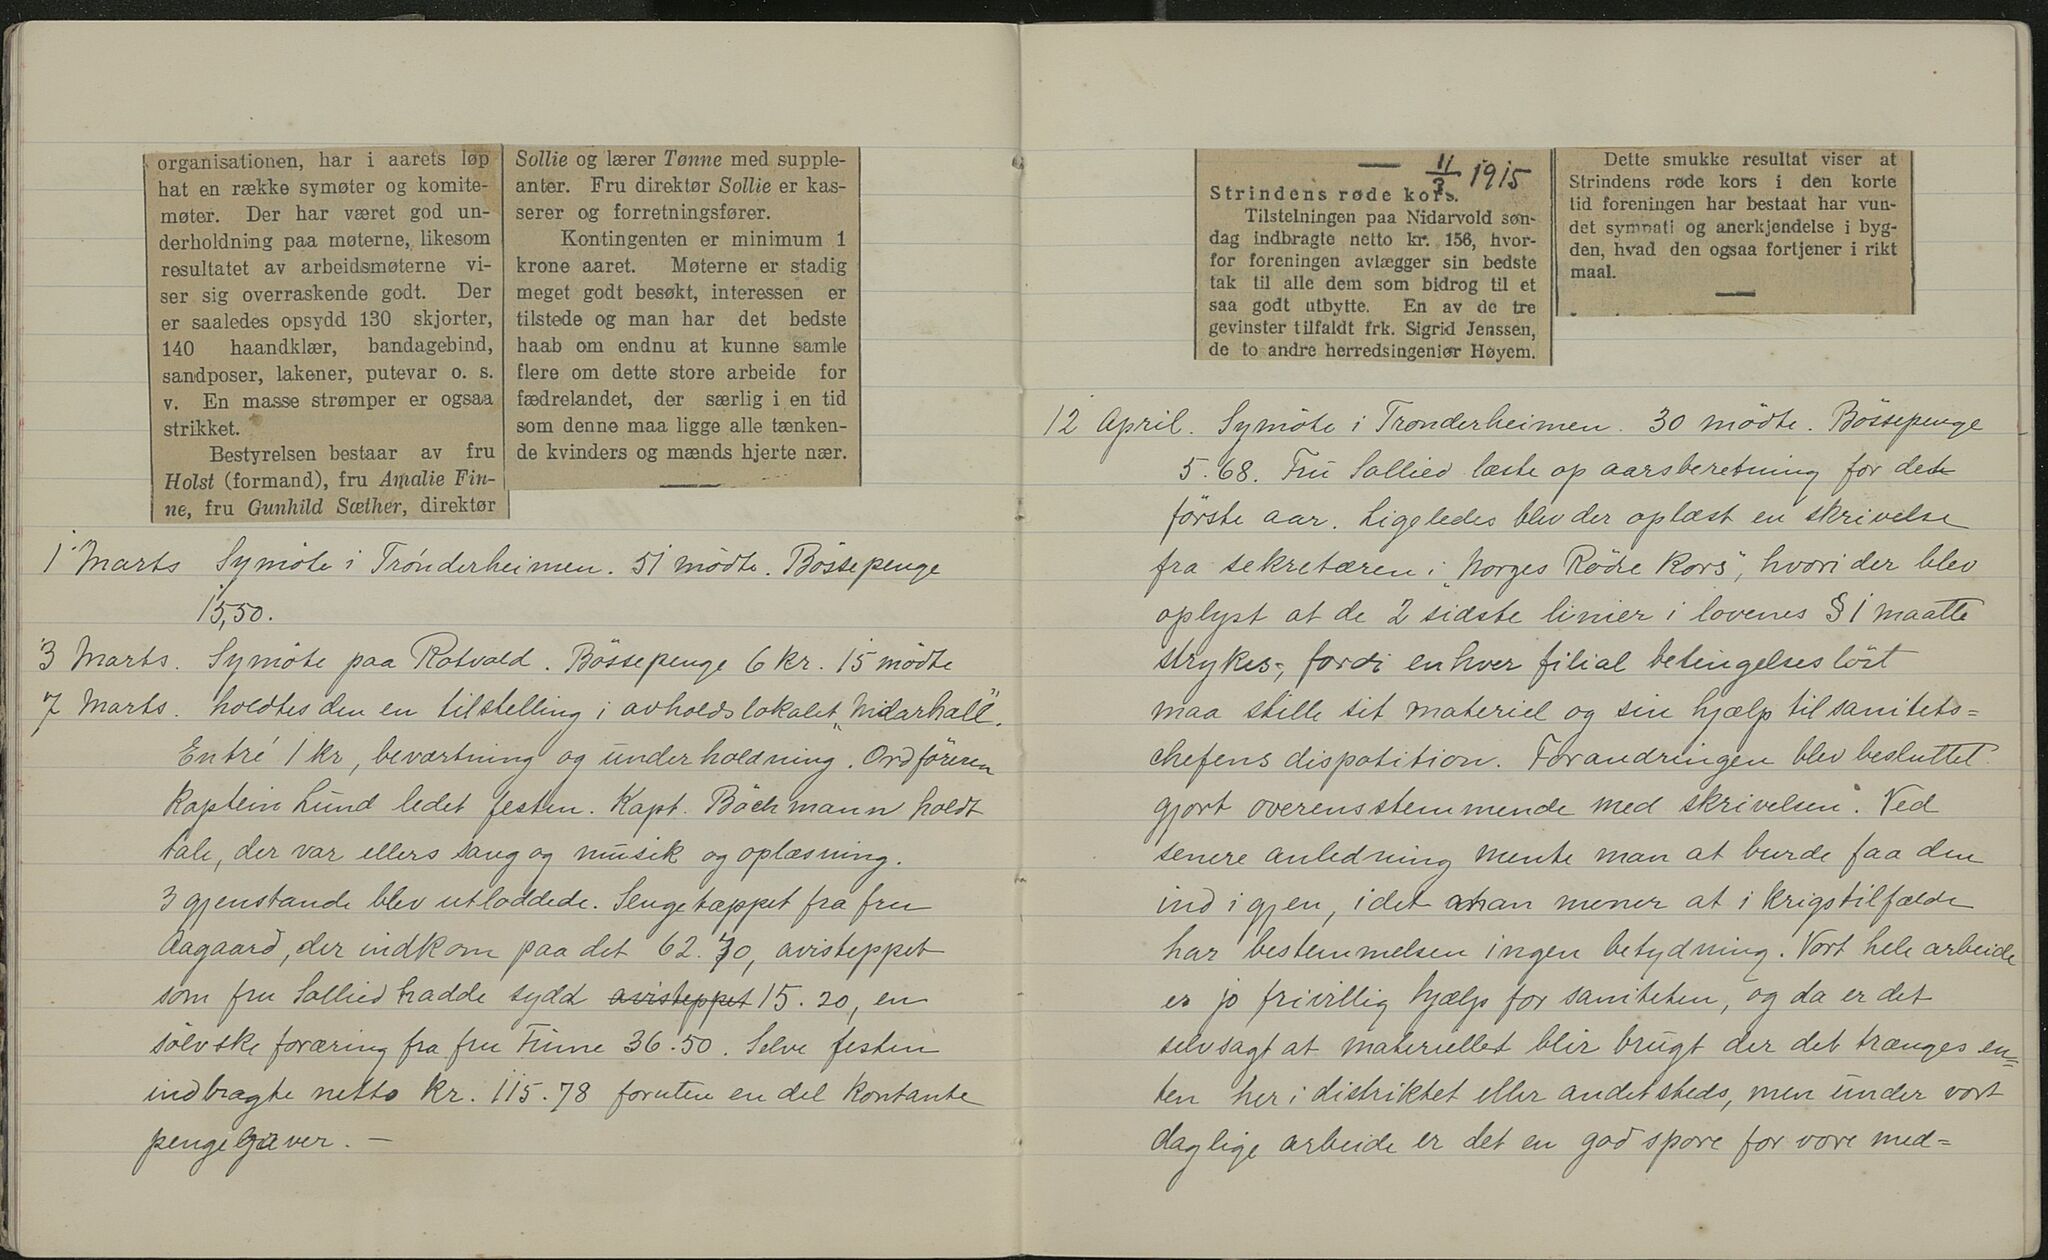 organisationen, har i aarets løp
hat en række symøter og komite-
møter. Der har været god un-
derholdning paa møterne, likesom
resultatet av arbeidsmøterne vi-
ser sig overraskende godt. Der
er saaledes opsydd 130 skjorter,
140 haandklær, bandagebind,
sandposer, lakener, putevar o. s.
v. En masse strømper er ogsaa
strikket.
Bestyrelsen bestaar av fru
Holst (formand), fru Amalie Fin-
ne, fru Gunhild Sæther, direktør
Sollie og lærer Tønne med supple-
anter. Fru direktør Sollie er kas-
serer og forretningsfører.
Kontingenten er minimum 1
krone aaret. Møterne er stadig
meget godt besøkt, interessen er
tilstede og man har det bedste
haab om endnu at kunne samle
flere om dette store arbeide for
fædrelandet, der særlig i en tid
som denne maa ligge alle tænken-
de kvinders og mænds hjerte nær.
1 Marts Symöte i Trónderheimen. 51 mödte. Bössepenge
15,50.
3 Marts. Symöte paa Rotvold. Bössepenge 6 kr. 15 mödte
7 Marts. holdtes den en tilstelling i avholdslokalet „Nidarhall".
Entré 1 kr, beværtning og underholdning. Ordföreren
Kaptein Lund ledet festen. Kapt. Bäckmann holdt
tale, der var ellers sang og musik og oplæsning.
3 gjenstande blev utloddede. Sengetæppet fra fru
Aagaard, der indkom paa det 62.70, avisteppet
som fru Sollied hadde sydd avisteppet 15.20, en
sölvske foræring fra fru Finne 36.50. Selve festen
indbragte netto kr. 115.78 foruten en del kontante
pengegaver. —
11/3 1915
Strindens røde kors.
Tilstelningen paa Nidarvold søn-
dag indbragte netto kr. 156, hvor-
for foreningen avlægger sin bedste
tak til alle dem som bidrog til et
saa godt utbytte. En av de tre
gevinster tilfaldt frk. Sigrid Jenssen,
de to andre herredsingeniør Høyem.
Dette smukke resultat viser at
Strindens røde kors i den korte
tid foreningen har bestaat har vun-
det sympati og anerkjendelse i byg-
den, hvad den ogsaa fortjener i rikt
maal.
12 April. Symöte i Trønderheimen. 30 mödte. Bössepenge
5.68. Fru Sollied læste op aarsberetning for det
förste aar. Ligeledes blev der oplæst en skrivelse
fra sekretæren i „Norges Röde Kors", hvori der blev
oplyst at de 2 sidste linier i lovenes § 1 maatte
strykes; fordi enhver filial betingelseslöst
maa stille sit materiel og sin hjælp til sanitets=
chefens dispotition. Forandringen blev besluttet
gjort overensstemmende med skrivelsen. Ved
senere anledning mente man at burde faa den
ind igjen, idet man mener at i krigstilfælde
har bestemmelsen ingen betydning. Vort hele arbeide
er jo frivillig hjælp for saniteten, og da er det
selvsagt at materiellet blir brugt der det trænges en=
ten her i distriktet eller andetsteds, men under vort
daglige arbeide er det en god spore for vore med=